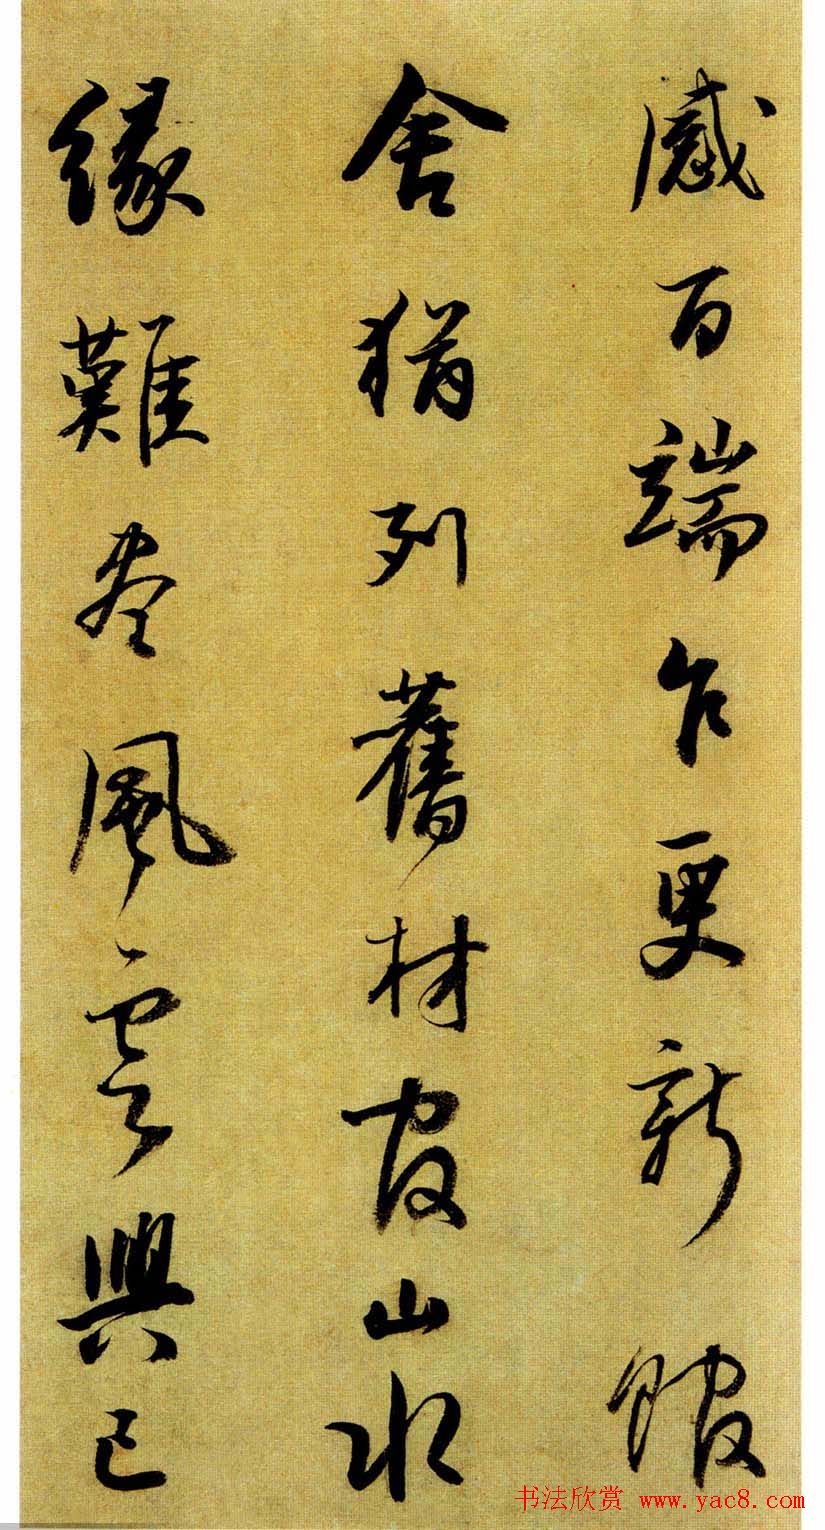 感百端乍更新館
舍猶列舊材官山水
緣難盡風雲興已
书法欣赏 www.yac8.com